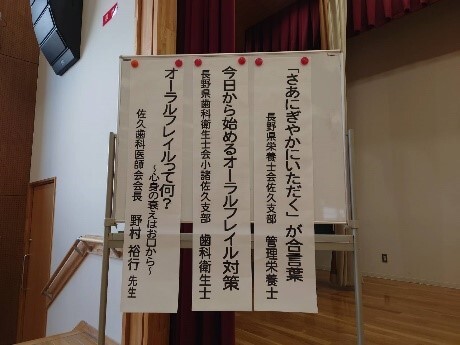 「さあにぎやかにいただく」が合言葉
長野県栄養士会佐久支部 管理栄養士
今日から始めるオーラルフレイル対策
長野県歯科衛生士会小諸佐久支部 歯科衛生士
オーラルフレイルって何?
～心身の衰えはお口から～
佐久歯科医師会会長 野村 裕行 先生